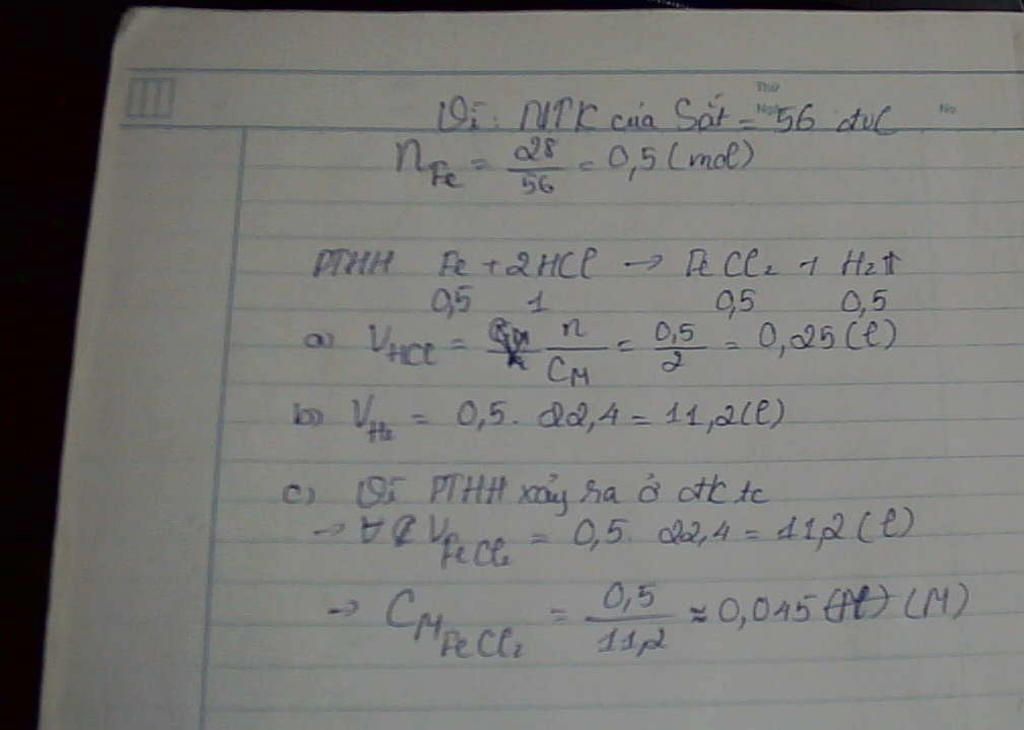 Thứ
Ngày No
Vì: NTK của Sắt = 56 đvC
n Fe = 28/56 = 0,5 (mol)
PTHH Fe + 2HCl → FeCl₂ + H₂↑
0,5 1 0,5 0,5
a) V HCl = n/C_M = 0,5/2 = 0,25 (l)
b) V H₂ = 0,5. 22,4 = 11,2 (l)
c) Vì PTHH xảy ra ở đktc
→ V FeCl₂ = 0,5. 22,4 = 11,2 (l)
→ C_M FeCl₂ = 0,5/11,2 ≈ 0,045 (M)